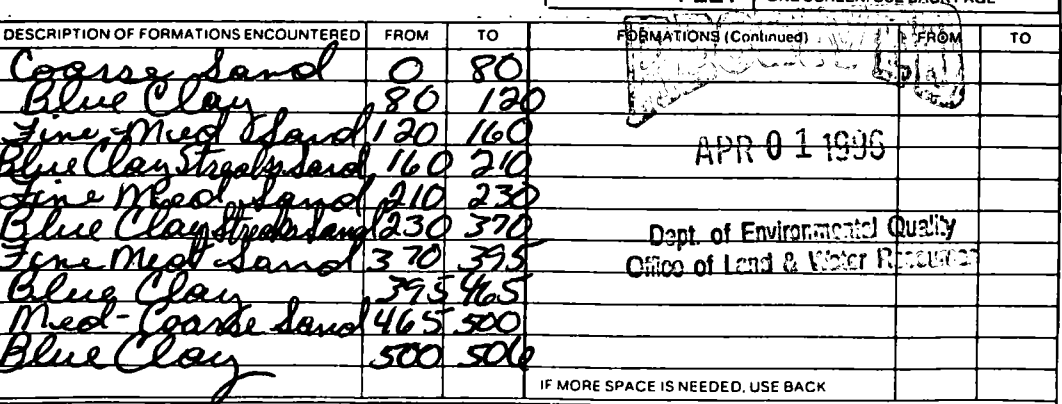 DESCRIPTION OF FORMATIONS ENCOUNTERED FROM TO FORMATIONS (Continued) FROM TO
Coarse Sand 0 80
Blue Clay 80 120
Fine-Med Sand 120 160
Blue Clay Streaks Sand 160 210
Fine Med Sand 210 230
Blue Clay Streaks Sand 230 370
Fine Med Sand 370 395
Blue Clay 395 465
Med-Coarse Sand 465 500
Blue Clay 500 506
APR 01 1996
Dept. of Environmental Quality
Office of Land & Water Resources
IF MORE SPACE IS NEEDED, USE BACK